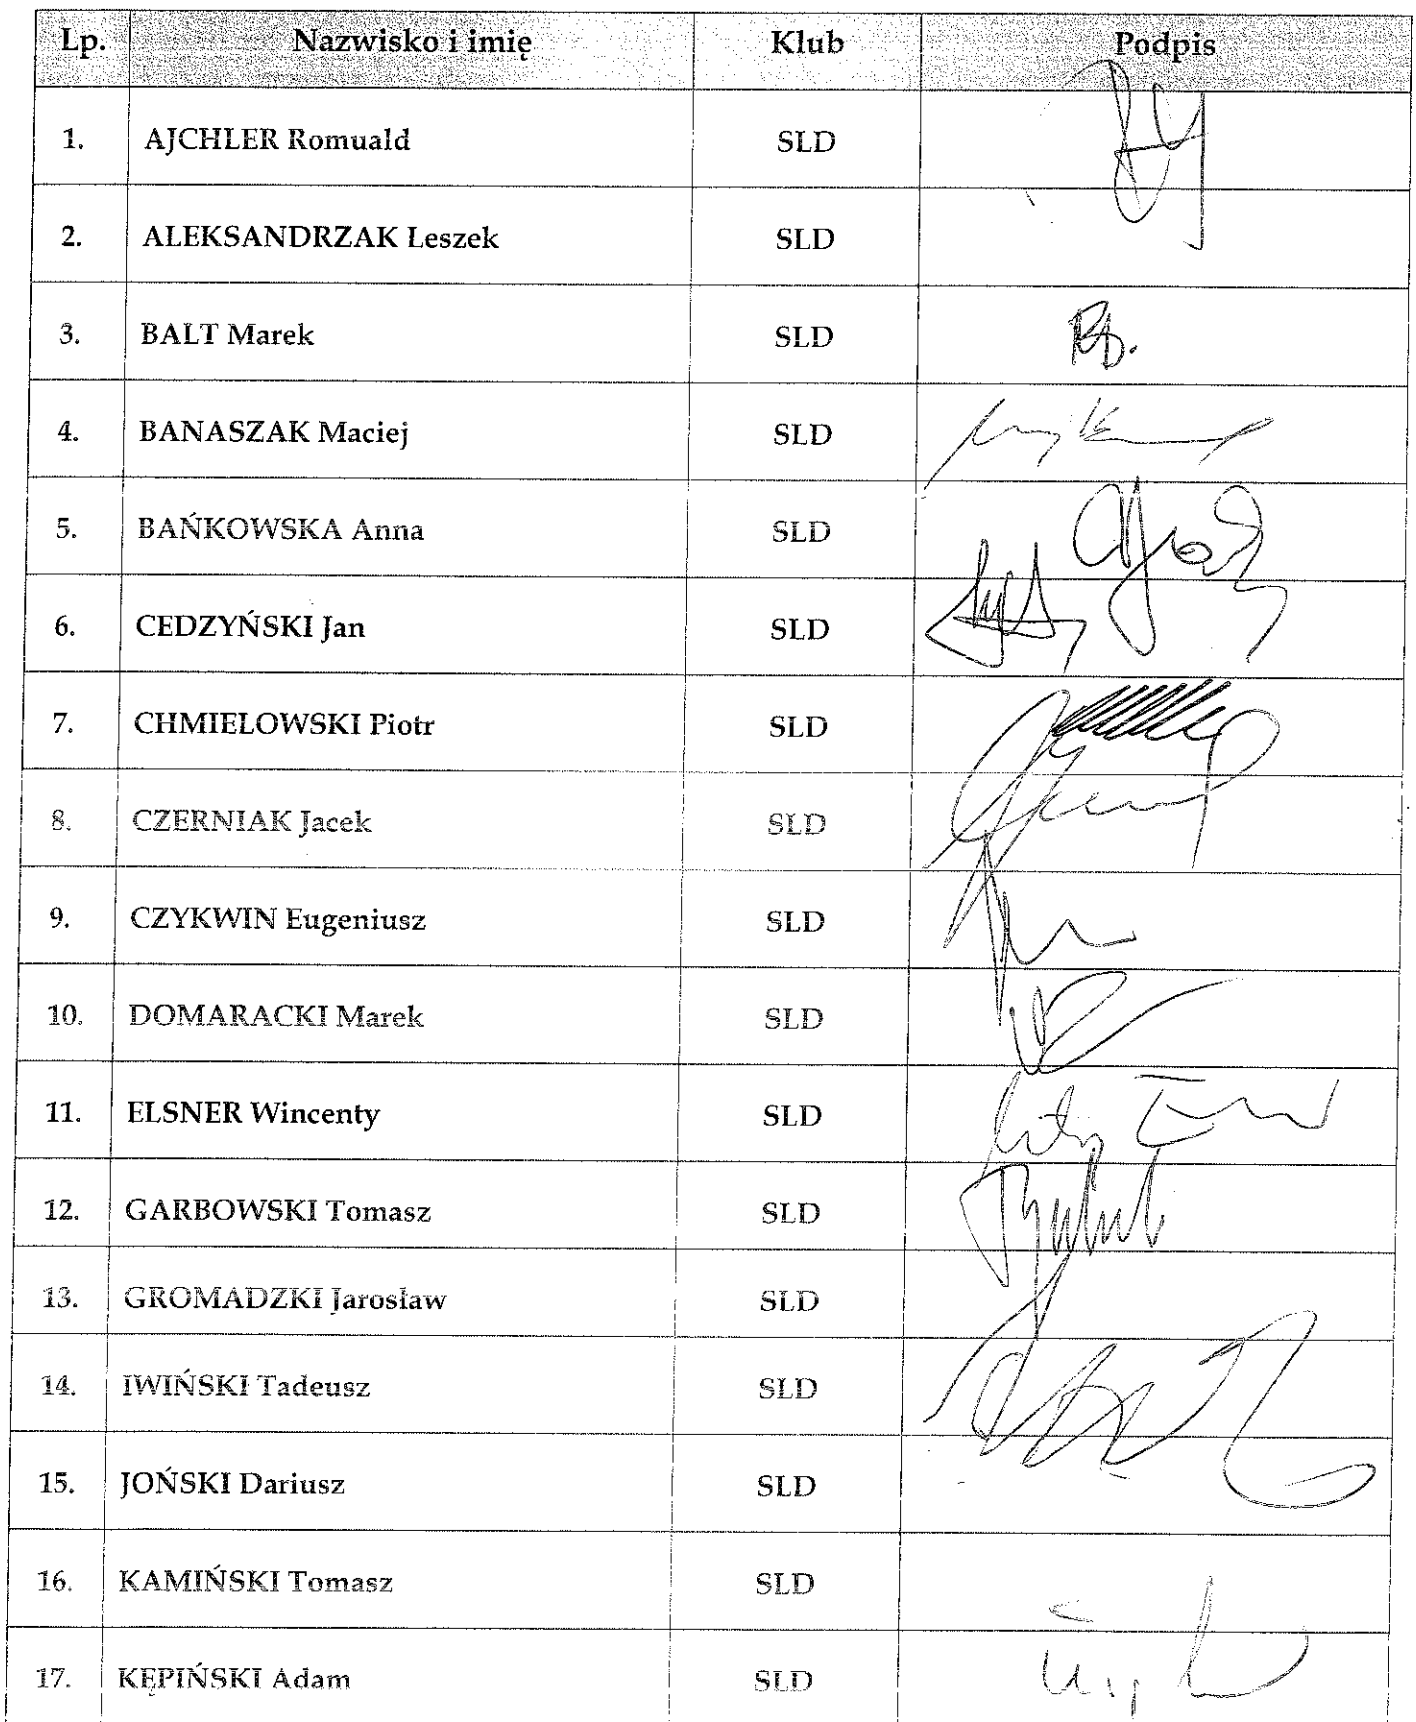 Lp. Nazwisko i imię Klub Podpis
1. AJCHLER Romuald SLD
2. ALEKSANDRZAK Leszek SLD
3. BALT Marek SLD
4. BANASZAK Maciej SLD
5. BAŃKOWSKA Anna SLD
6. CEDZYŃSKI Jan SLD
7. CHMIELOWSKI Piotr SLD
8. CZERNIAK Jacek SLD
9. CZYKWIN Eugeniusz SLD
10. DOMARACKI Marek SLD
11. ELSNER Wincenty SLD
12. GARBOWSKI Tomasz SLD
13. GROMADZKI Jarosław SLD
14. IWIŃSKI Tadeusz SLD
15. JOŃSKI Dariusz SLD
16. KAMIŃSKI Tomasz SLD
17. KĘPIŃSKI Adam SLD